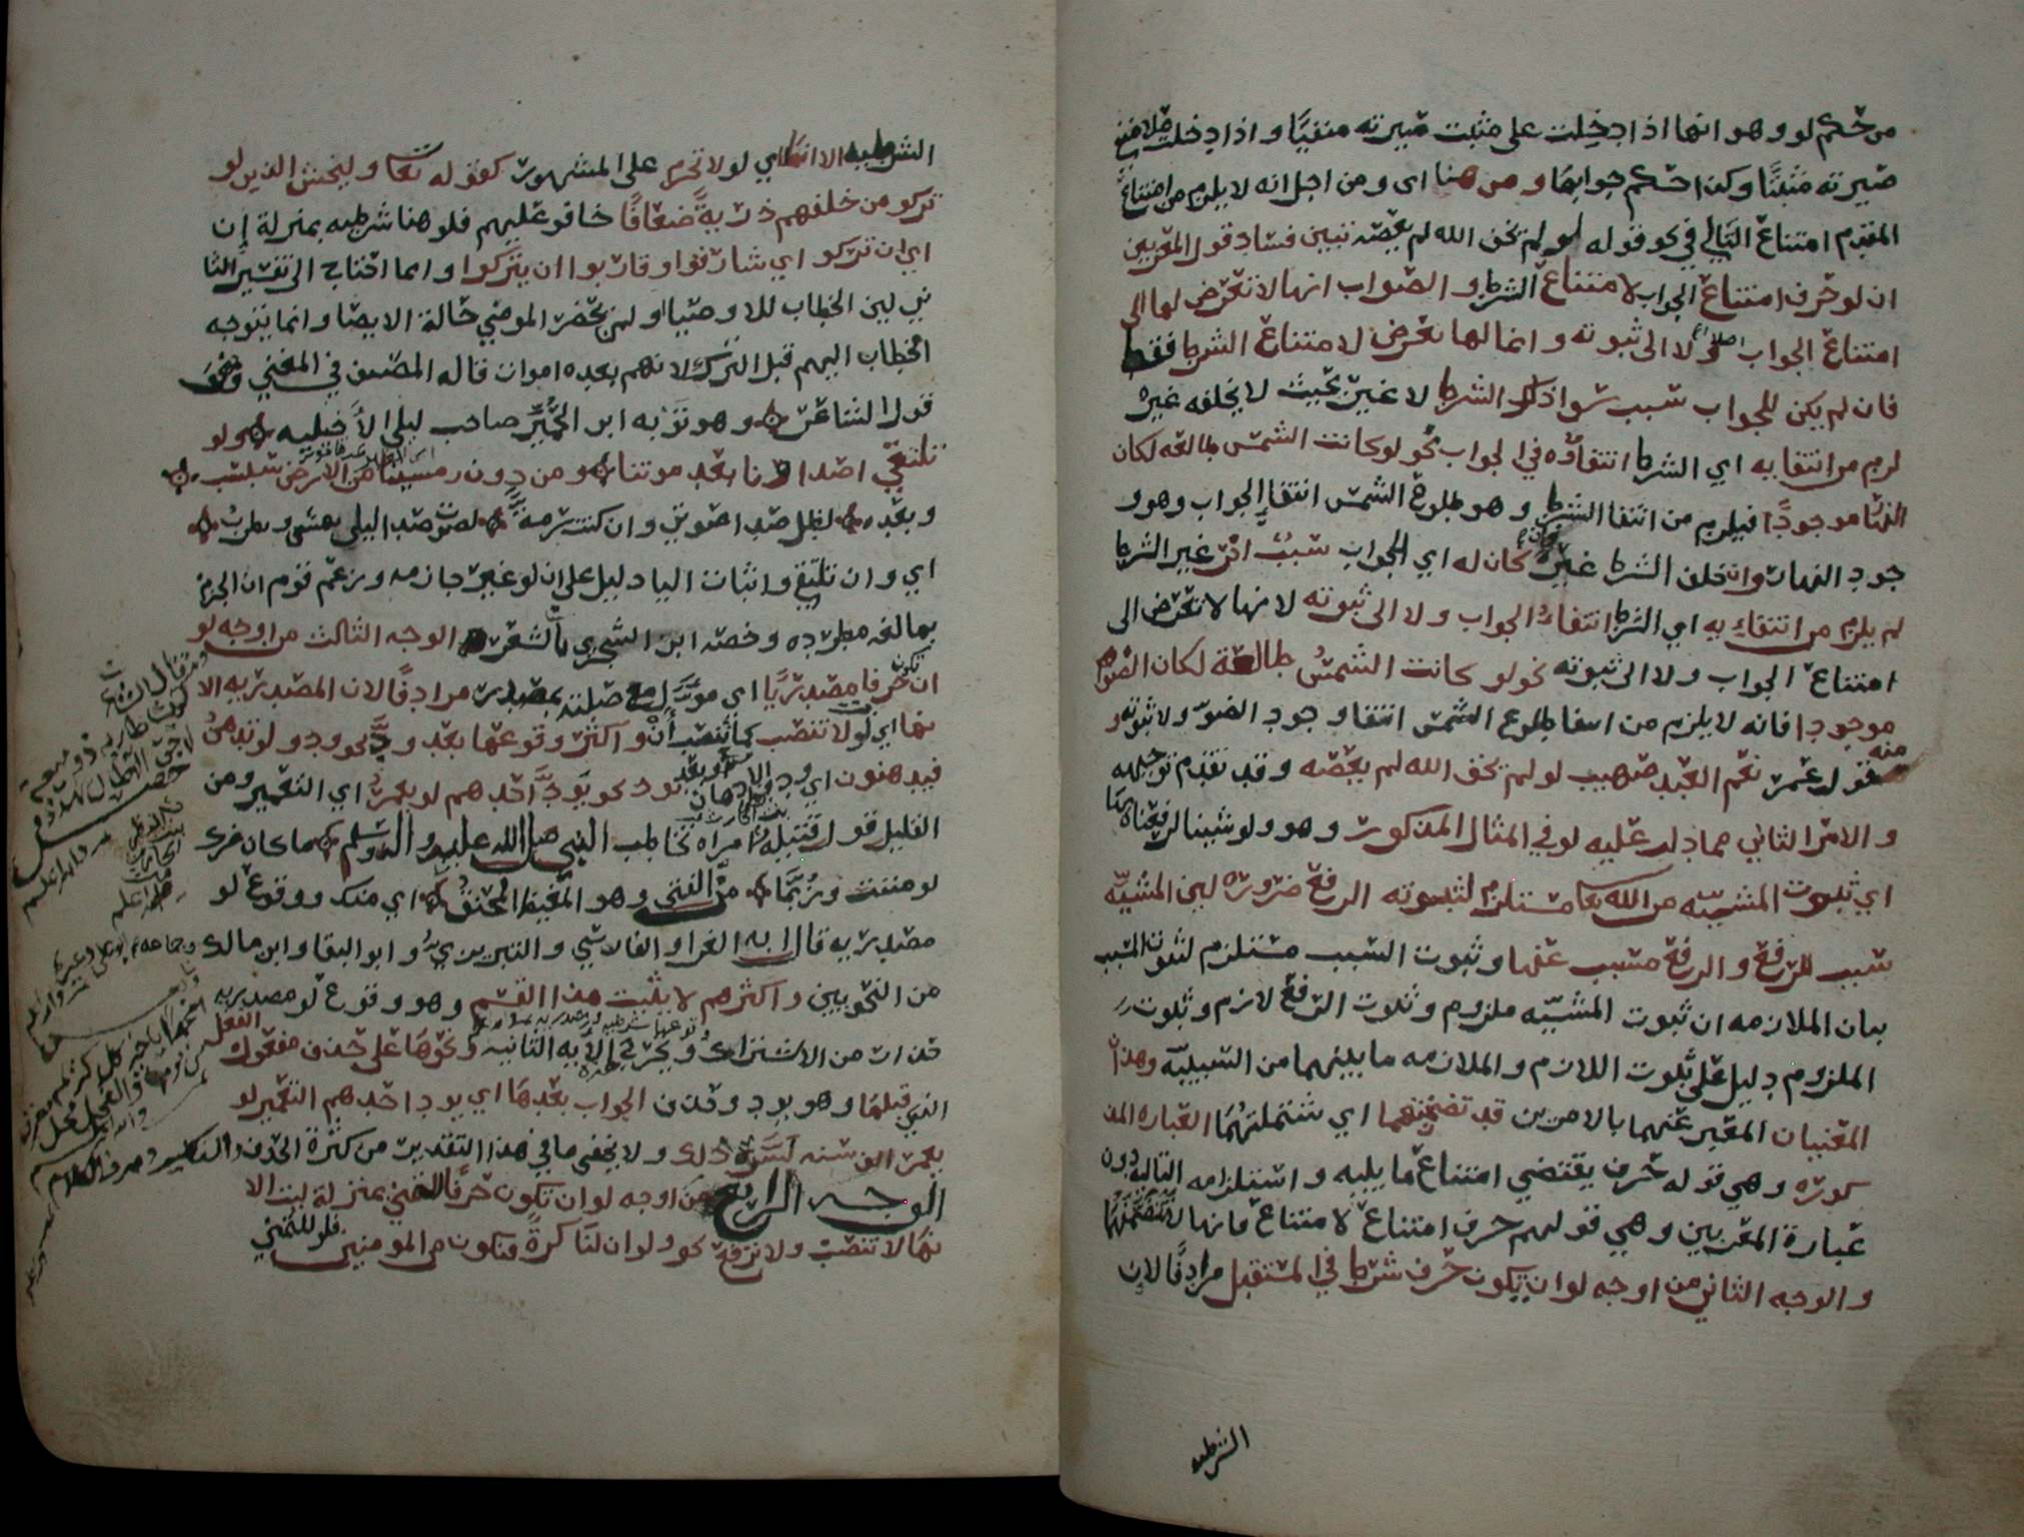 من حكم لو وهو انها اذا دخلت على مثبت صيرته منفيا واذا دخلت على منفي
صيرته مثبتا وكذا حكم جوابها ومن هنا اى ومن اجل انه لا يلزم من امتناع
المقدم امتناع التالي في نحو قوله لو لم يخف الله لم يعصه تبين فساد قول المعربين
ان لو حرف امتناع الجواب لامتناع الشرط والصواب انها لا تعرض لها الى
امتناع الجواب اصلا ولا الى ثبوته وانما لها تعرض لامتناع الشرط فقط
فان لم يكن للجواب سبب سوا ذلك الشرط لا غير بحيث لا يخلفه غيره
لزم من انتفايه اي الشرط انتفاؤه في الجواب نحو لو كانت الشمس طالعه لكان
النهار موجودا فيلزم من انتفا الشرط وهو طلوع الشمس انتفا الجواب وهو و
جود النهار وان خلف الشرط غيره كان له اي للجواب سبب اخر غير الشرط
لم يلزم من انتفايه اي الشرط انتفاء الجواب ولا الى ثبوته لانها لا تعرض الى
امتناع الجواب ولا الى ثبوته نحو لو كانت الشمس طالعة لكان الضوء
موجودا فانه لا يلزم من انتفا طلوع الشمس انتفا وجود الضوء ولا ثبوته و
منه قول عمر نعم العبد صهيب لو لم يخف الله لم يعصه وقد تقدم توجيهه
والامر الثاني مما دلت عليه لو في المثال المذكور وهو ولو شينا لرفعناه بها
اي ثبوت المشيه من الله تعا مستلزم لثبوته الرفع ضروره لين المشيه
سبب للرفع والرفع مسبب عنها وثبوت السبب مستلزم لثبوت المسبب
بيان الملازمه ان ثبوت المشيه ملزوم وثبوت الرفع لازم وثبوت
الملزوم دليل على ثبوت اللازم والملازمه ما بينهما من السببيه وهذا
المعنيان المعبر عنهما بالامرين قد تضمنتهما اي شتملتهما العباره المذ
كوره وهي قوله حرف يقتضي امتناع ما يليه واستلزامه التاليه دون
عبارة المعربين وهي قولهم حرف امتناع لامتناع فانها لا تتضمنهما
والوجه الثاني من اوجه لو ان يكون حرف شرط في المستقبل مرادفا لان
الشرطيه
الشرطيه الا انها اي لو لا تجزم على المشهور كقوله تعا وليخش الذين لو
تركو من خلفهم ذرية ضعافا خافو عليهم فلو هنا شرطيه بمنزلة إن
اي ان تركو اي شارفوا وقاربوا ان يتركوا وانما احتاج الى تفسير الثا
ني لين الخطاب للاوصيا او لمن يحضر الموصي حالة الايصا وانما يتوجه
الخطاب اليهم قبل الترك لانهم بعده اموات قاله المصنف في المغني ونحو
قول الشاعر وهو توبه ابن الحمير صاحب ليلى الأخيليه ولو
تلتقي اصداونا بعد موتنا ومن دون رمسينا من الارض سبسب
وبعده لظل صدا صوتي وان كنت رمه لصوت صدا ليلى يهش ويطرب
اي وان تلتقي واثبات اليا دليل على ان لو غير جازمه وزعم قوم ان الجزم
بها لغه مطرده وخصه ابن الشجري بالشعر الوجه الثالث من اوجه لو
ان تكون حرفا مصدريا اي مؤول مع صلته بمصدر مرادفا لان المصدريه الا
نها اي لو لا تنصب كما تنصب أن واكثر وقوعها بعد ود نحو ودو لو تدهن
فيدهنون اي ودو الادهان او بعد يود نحو يود احدهم لو يعمر اي التعمير ومن
القليل قول قتيلة امراه تخاطب النبي صلى الله عليه واله وسلم ما كان ضرك
لو مننت وربما من الفتى وهو المغيظ المحنق اي منك ووقوع لو
مصدريه قال به الفرا والفارسي والتبريزي وابو البقا وابن مالك
من النحويين واكثرهم لا يثبت هذا القسم وهو وقوع لو مصدريه
حذرا من الاشتراك ويخرج الآيه الثانيه ونحوها على حذف مفعول الفعل
الذي قبلها وهو يود وحذف الجواب بعدها اي يود احدهم التعمير لو
يعمر الف سنه لسره ذلك ولا يخفى ما في هذا التقدير من كثرة الحذف
الوجه الرابع من اوجه لو ان تكون حرفا للتمني بمنزلة ليت الا
نها لا تنصب ولا ترفع نحو لو ان لنا كرة فنكون من المومنين فلو للتمني